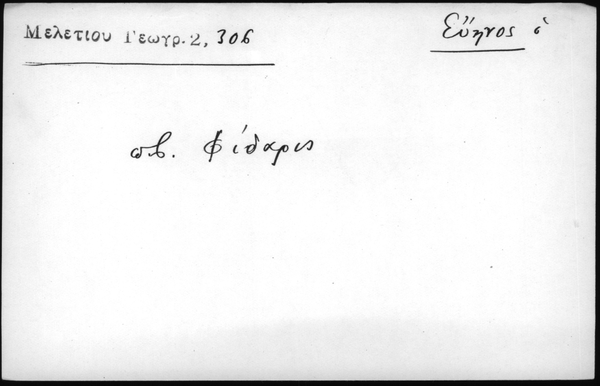 Μελετίου Γεωγρ. 2, 306
Εὔηνος ὁ
πβ. Φίδαρις